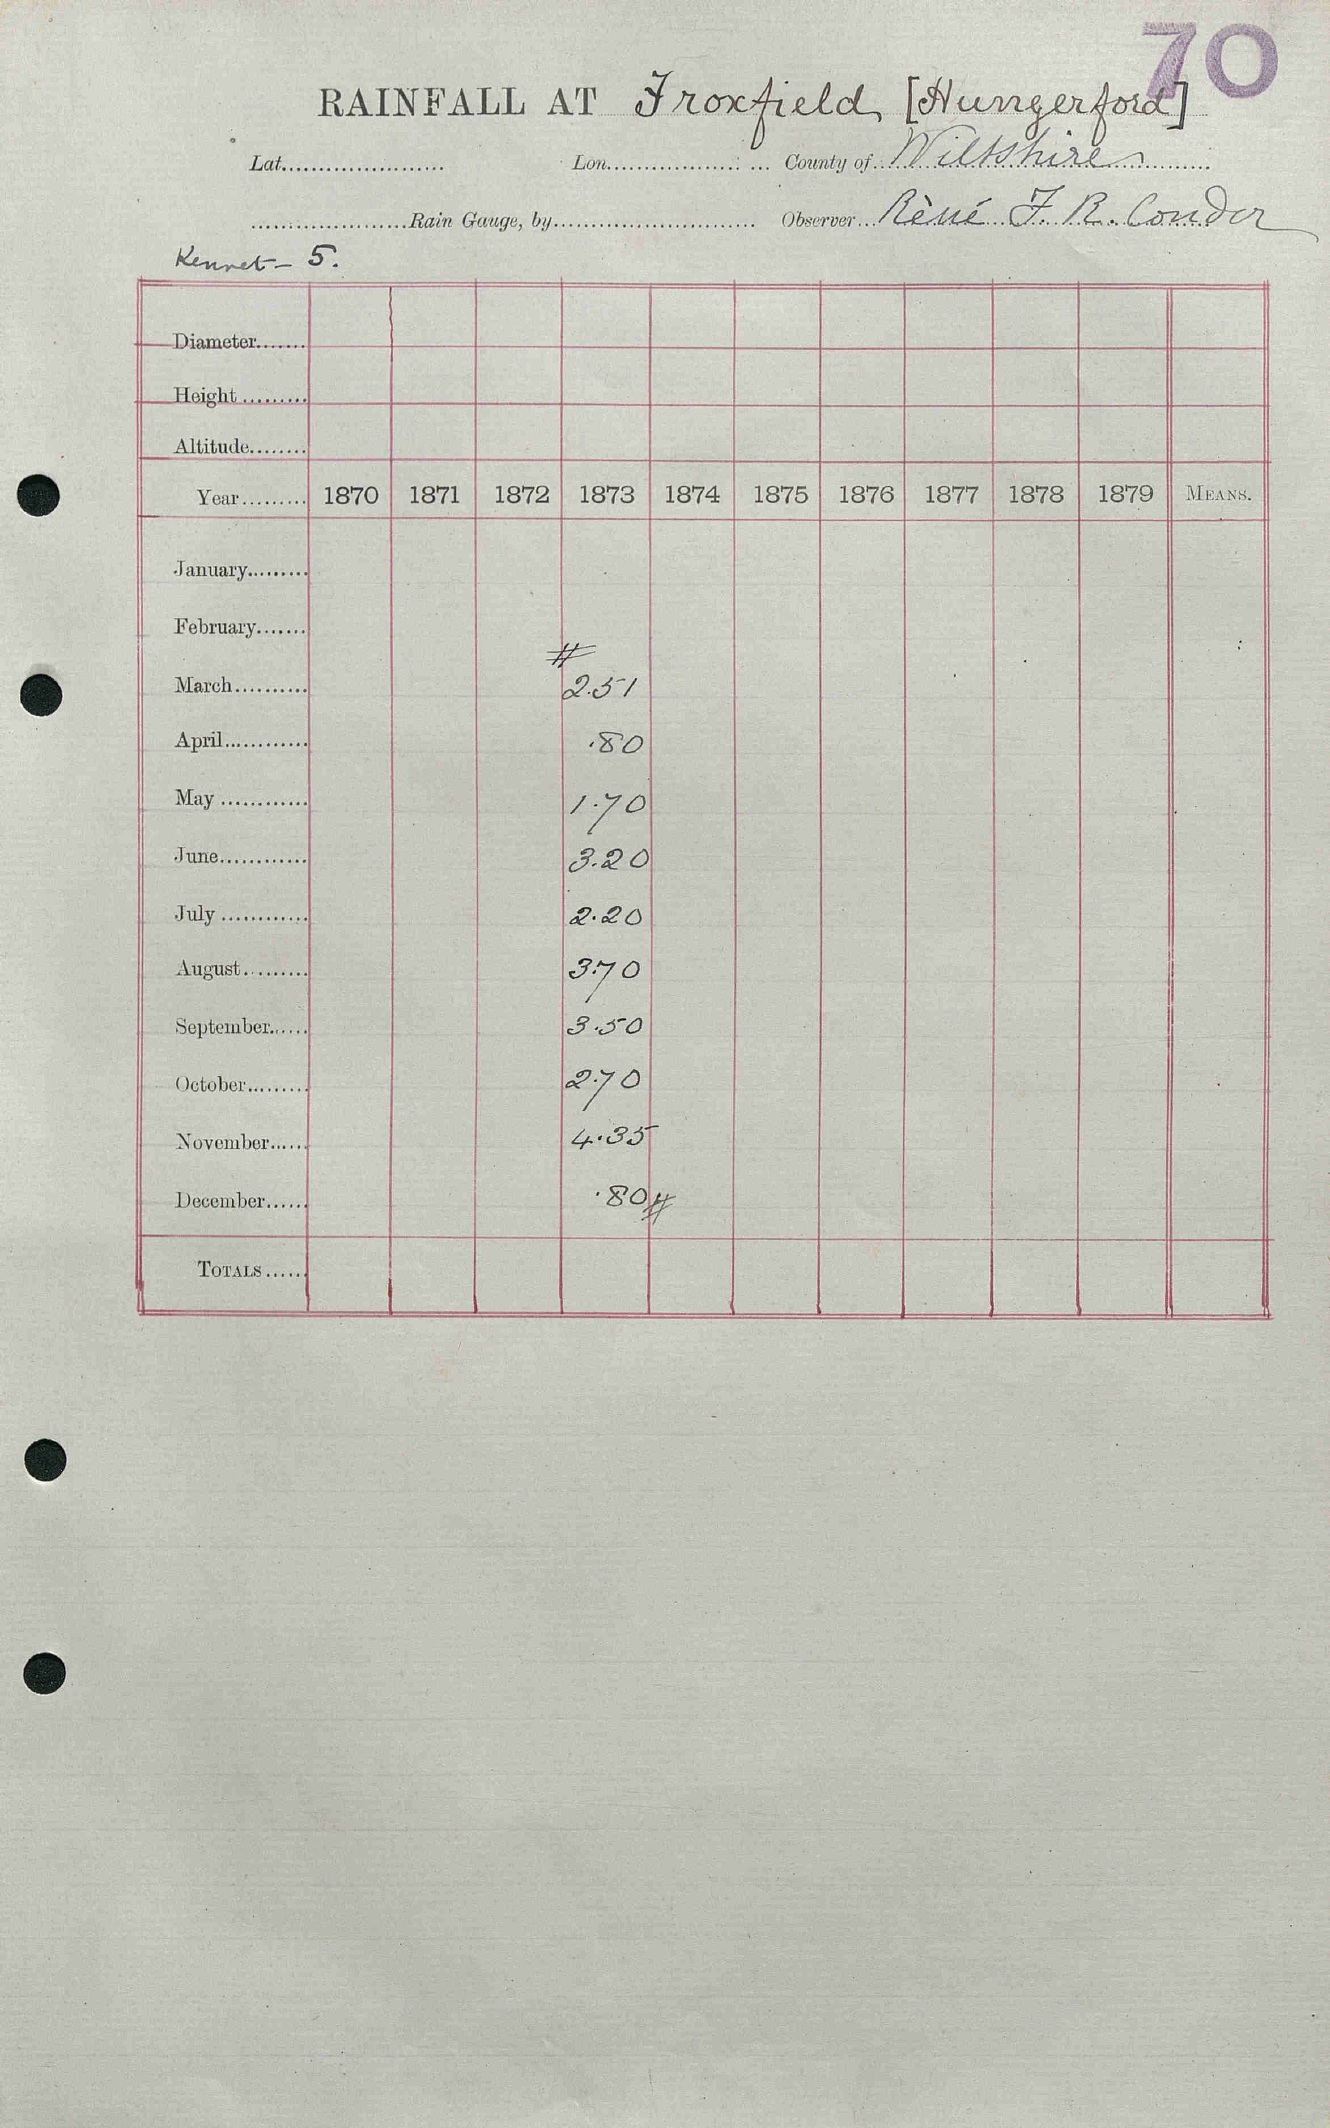 70
RAINFALL AT Froxfield, [Hungerford]
Lat. Lon. County of Wiltshire
Rain Gauge, by Observer Rèné F. R. Conder
Kennet — 5.
Diameter
Height
Altitude
Year 1870 1871 1872 1873 1874 1875 1876 1877 1878 1879 MEANS.
January
February
#
March 2.51
April .80
May 1.70
June 3.20
July 2.20
August 3.70
September 3.50
October 2.70
November 4.35
December .80 #
TOTALS